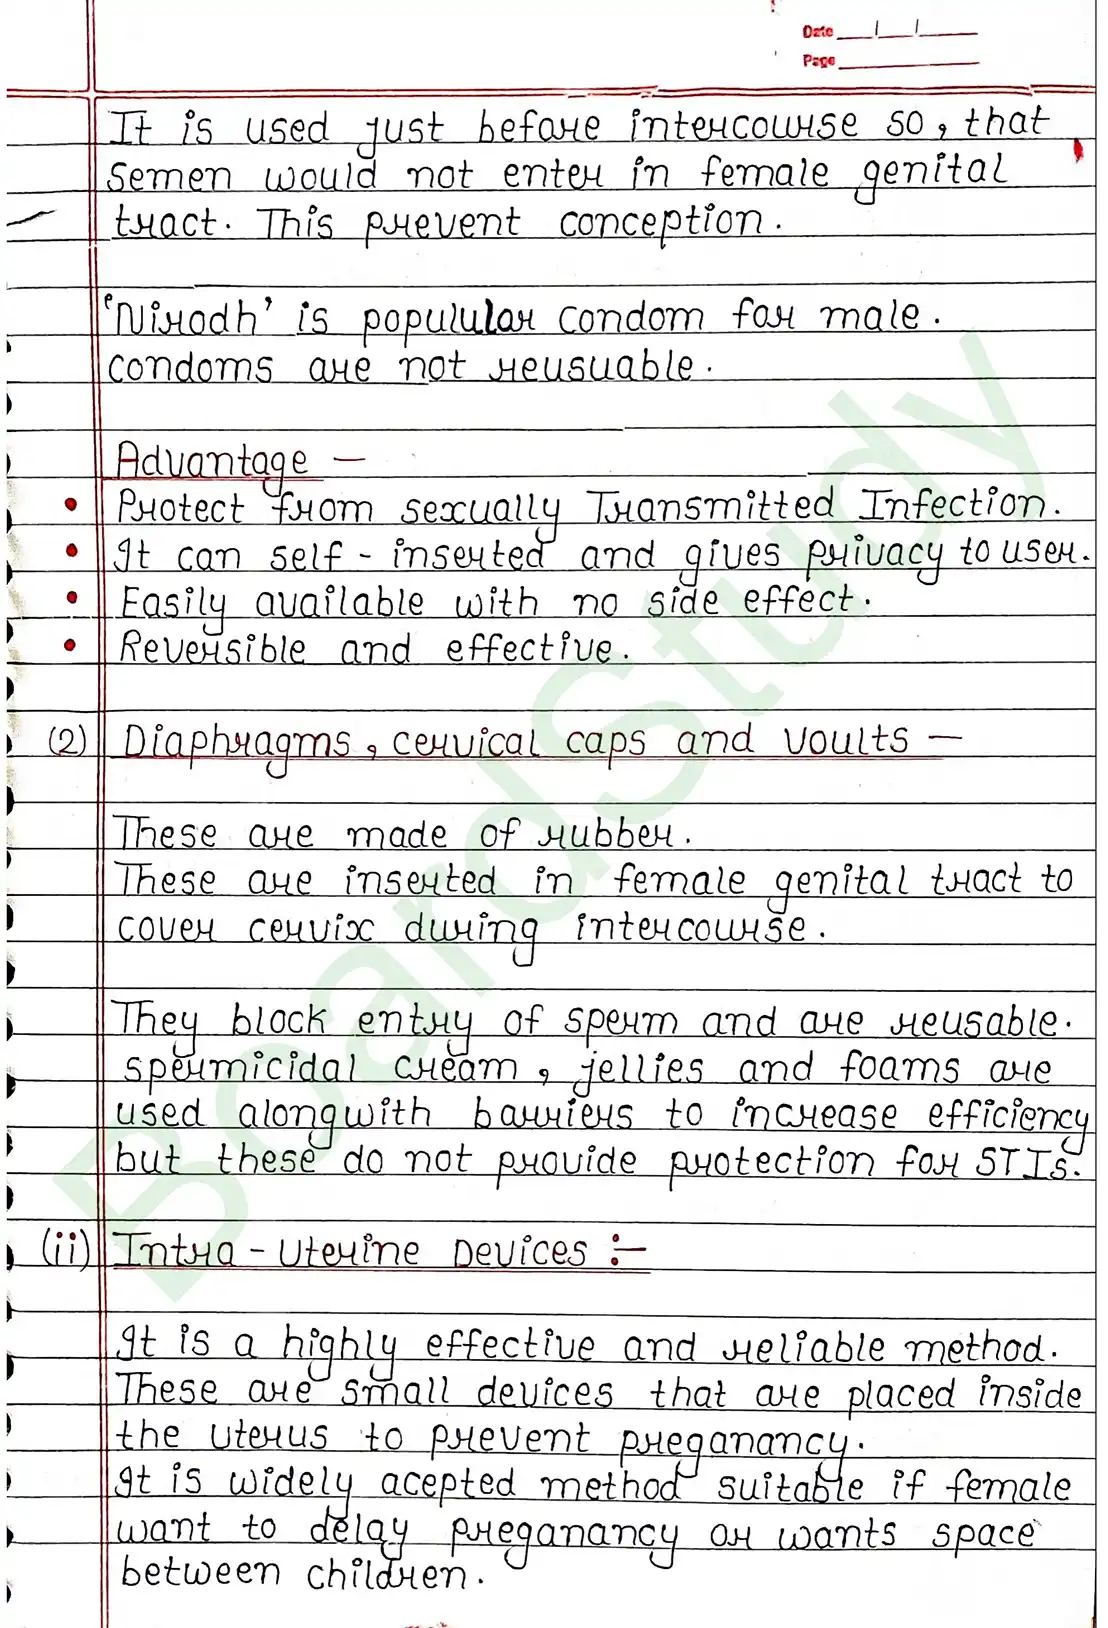 Date
Page
It is used just before intercourse so, that
semen would not enter in female genital
tract. This prevent conception.
'Nirodh' is populular condom for male.
condoms are not reusuable.
Advantage —
• Protect from sexually Transmitted Infection.
• It can self - inserted and gives privacy to user.
• Easily available with no side effect.
• Reversible and effective.
(2) Diaphragms, cervical caps and voults —
These are made of rubber.
These are inserted in female genital tract to
cover cervix during intercourse.
They block entry of sperm and are reusable.
spermicidal cream, jellies and foams are
used alongwith barriers to increase efficiency
but these do not provide protection for STIs.
(ii) Intra - Uterine Devices :-
It is a highly effective and reliable method.
These are small devices that are placed inside
the uterus to prevent preganancy.
It is widely acepted method suitable if female
want to delay preganancy or wants space
between children.
BoardStudy